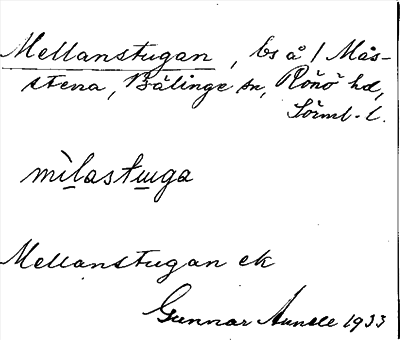 Mellanstugan, bs å / Mås-
stena, Bälinge sn, Rönö hd,
Sörml. l.
mìlastuga
Mellanstugan ek
Gunnar 1933